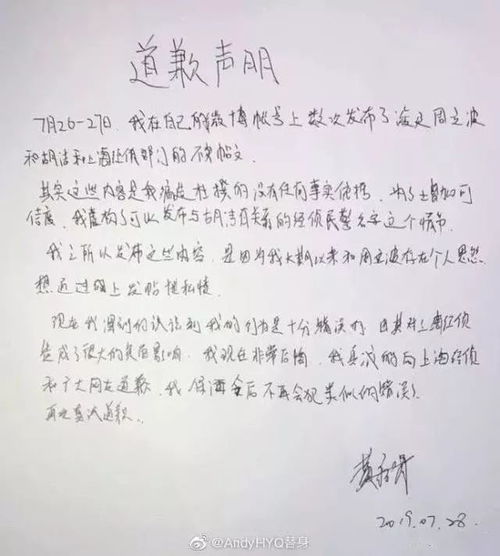 道歉声明
7月26-27日，我在自己的微博帐号上数次发布了涉及周立波
和胡洁和上海经侦部门的不实帖文。
其实这些内容是我编造杜撰的没有任何事实依据，为了增加可
信度，我虚构了可以发布与胡洁有关系的经侦民警名字这个情节。
我之所以发布这些内容，是因为我长期以来和周立波存在个人恩怨
想通过网上发贴泄私愤。
现在我深刻的认识到我的行为是十分错误的，尤其对上海经侦
造成了很大的负面影响，我现在非常后悔，我真诚的向上海经侦
和广大网友道歉，我保证今后不再会犯类似的错误，
再次真诚道歉。
2019.07.28.
@AndyHYQ替身